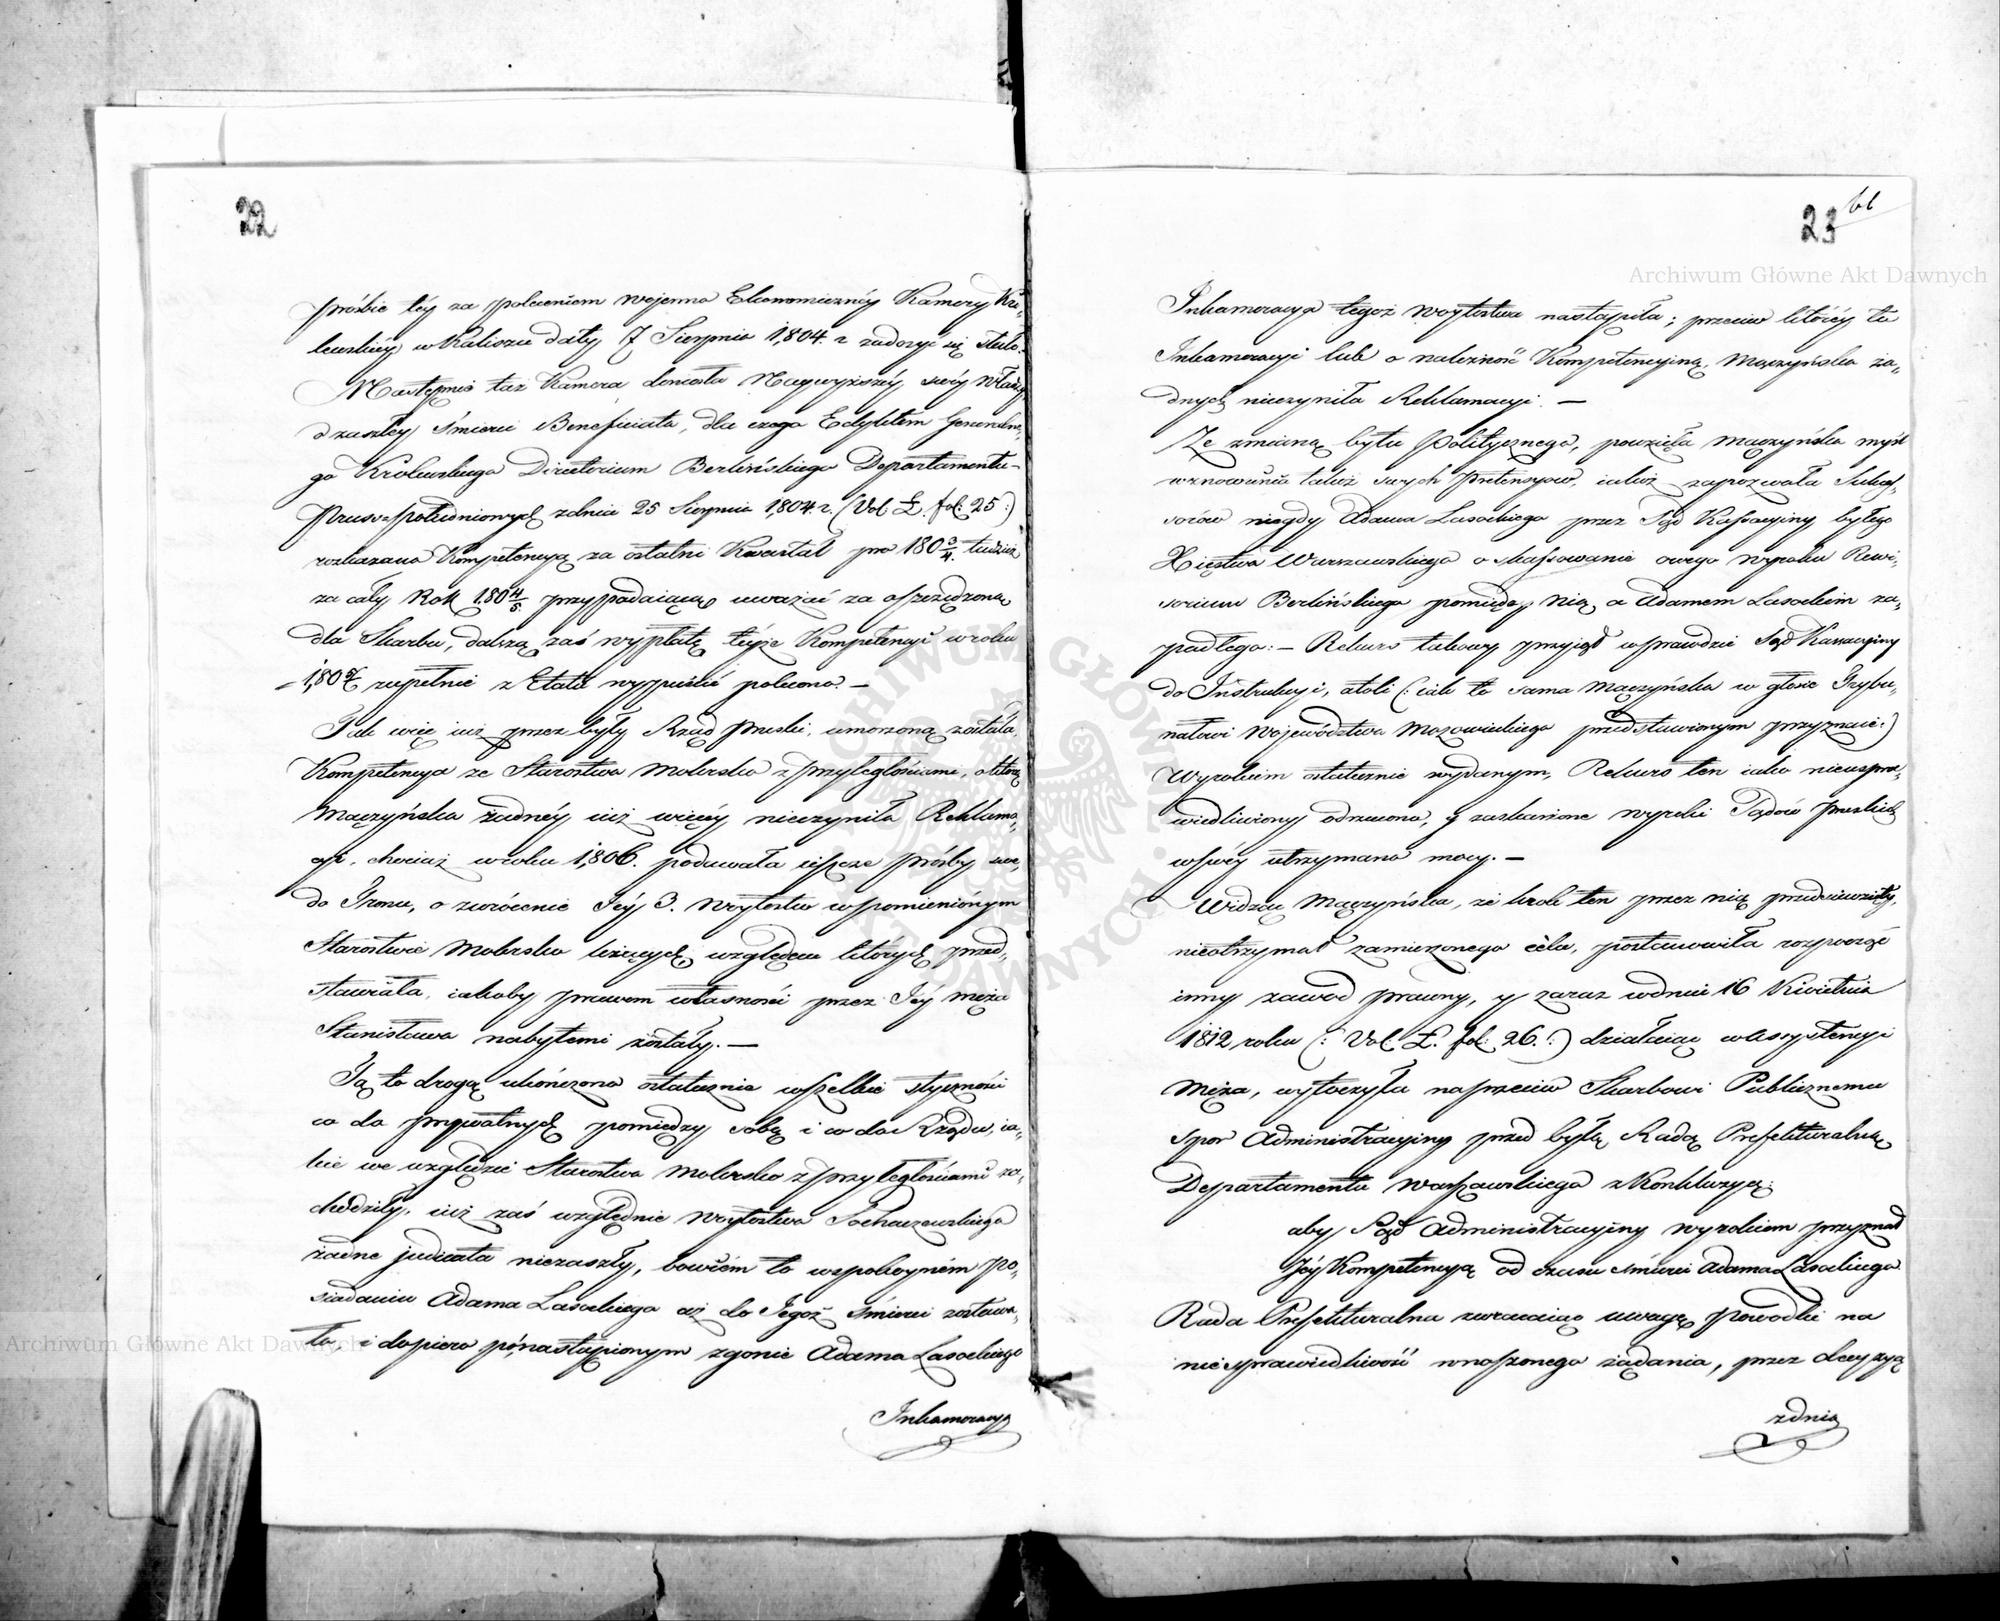 22
prośbie téy za poleceniem wojenno Ekonomicznéy Kamery Kró-
lewskiéy w Kaliszu daty 7 Sierpnia 1,804. r. zadosyć się stało.
Następnie taż Kamera doniosła Naywyższéy swéy Władzy
o zaszłey śmierci Beneficiata, dla czego Edyktém Generalne-
go Królewskiego Directorium Berlińskiego Departamentu
Pruss-południowych z dnia 25 Sierpnia 1,804. r. (Vol. £. fol: 25:)
rozkazano Kompetencyą za ostatni Kwartał pro 180 3/4. tudzież
za cały Rok 180 4/5 przypadaiącą uważać za oszczędzoną
dla Skarbu, dalszą zaś wypłatę teyże Kompetencyi w roku
zupełnie z Etatu wypuścić polecono. —
Tak więc iuż przez były Rząd Pruski, umorzoną została
Kompetencya ze Starostwa Mokrsko z przyległościami, o którą
Mączyńska żadnéy iuż więcéy nieczyniła Reklama-
cyi, chociaż w roku 1,806. podawała ieszcze prośby swe
do Tronu, o zwrócenie Jéy 3. Woytostw w spomienionym
Starostwie Mokrsko leżących, względem których przed-
stawiała, iakoby prawem własności przez Jéy męża
Stanisława nabytemi zostały. —
Tą to drogą ukończono ostatecznie wszelkie styczności
co do prywatnych pomiędzy sobą i co do Rządu, ia-
kie we względzie Starostwa Mokrsko z przyległościami za-
chodziły, iuż zaś względnie Woytostwa Sochaczewskiego
żadne judicata niezaszły, bowiém to w spokoyném po-
siadaniu Adama Lasockiego aż do Jegoż śmierci zostawa-
ło, i dopiero po nastąpionym zgonie Adama Lasockiego
Inkameracya
23
Inkameracya tegoż Woytostwa nastąpiła; przeciw któréy to
Inkameracyi lub o należność Kompetencyiną, Mączyńska ża-
dnych nieczyniła Reklamacyi. —
Ze zmianą bytu Politycznego, powzięła Mączyńska myśl
wznowienia takiż swych Pretensyów, iakoż zapozwała Sukces-
sorów niegdy Adama Lasockiego przez Sąd Kassacyiny byłego
Xięstwa Warszawskiego o skassowanie owego wyroku Rewi-
sorium Berlińskiego pomiędzy Nią a Adamem Lasockim za-
padłego. — Rekurs takowy przyiął wprawdzie Sąd Kassacyiny
do Instrukcyi, atoli (: iak to sama Mączyńska w głosie Trybu-
nałowi Województwa Mazowieckiego przedstawionym przyznaie:)
Wyrokiem ostatecznie wydanym, Rekurs ten iako nieuspra-
wiedliwiony odrzucono, y zaskarżone wyroki Sądów Pruskich
w swéy utrzymano mocy. —
Widząc Mączyńska, że krok ten przez nią przedsięwzięty,
nieotrzymał zamierzonego célu, postanowiła rozpocząć
inny zawód prawny, y zaraz w dniu 16 Kwietnia
1812 roku (: Vol: £. fol: 26. :) działaiąc w Assystencyi
Męża, wytoczyła naprzeciw Skarbowi Publicznemu
spor Administracyiny przed byłą Radą Prefekturalną
Departamentu Warszawskiego z Konkluzyą;
aby Sąd Administracyiny wyrokiem przyznał
Jéy Kompetencyą od czasu śmierci Adama Lasockiego.
Rada Prefekturalna zwracaiąc uwagę Powodki na
niesprawiedliwość wnoszonego żądania, przez decyzyą
z dnia
Archiwum Główne Akt Dawnych
Archiwum Główne Akt Dawnych
ARCHIWUM GŁÓWNE AKT DAWNYCH